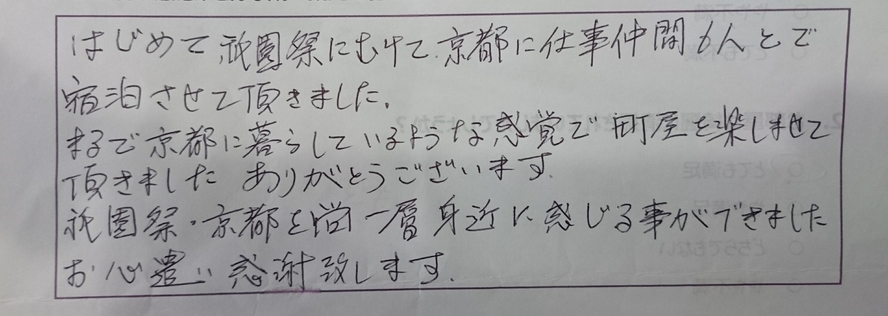 はじめて祇園祭にむけて京都に仕事仲間6人とで
宿泊させて頂きました。
まるで京都に暮らしているような感覚で町屋を楽しませて
頂きました ありがとうございます.
祇園祭・京都を尚一層身近に感じる事ができました
お心遣い感謝致します.